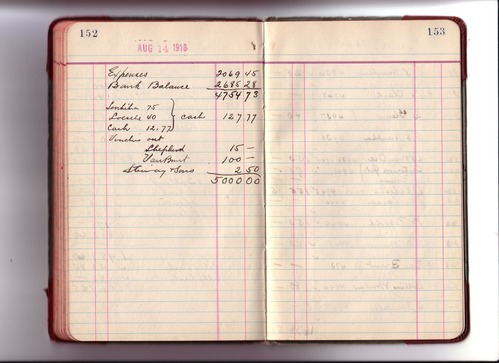 152
AUG 14 1916
Expenses 2069 45
Bank Balance 2685 28
4754 73
75
40 } cash 127 77
Cash 12.77
Vouchers out
Shepherd 15 —
VanBunt 100 —
& Sons 2 50
5000 00
153